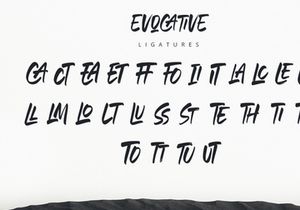 EVOCATIVE
LIGATURES
CA CT EA ET FF FO II IT LA LC LE
LL LM LO LT LU SS ST TE TH TI T
TO TT TU UT